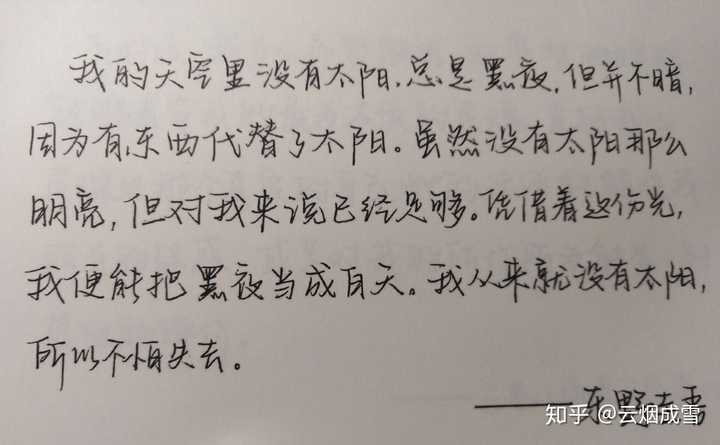 我的天空里没有太阳,总是黑夜,但并不暗,
因为有东西代替了太阳。虽然没有太阳那么
明亮,但对我来说已经足够。凭借着这份光,
我便能把黑夜当成白天。我从来就没有太阳,
所以不怕失去。
——东野圭吾
知乎 @云烟成雪